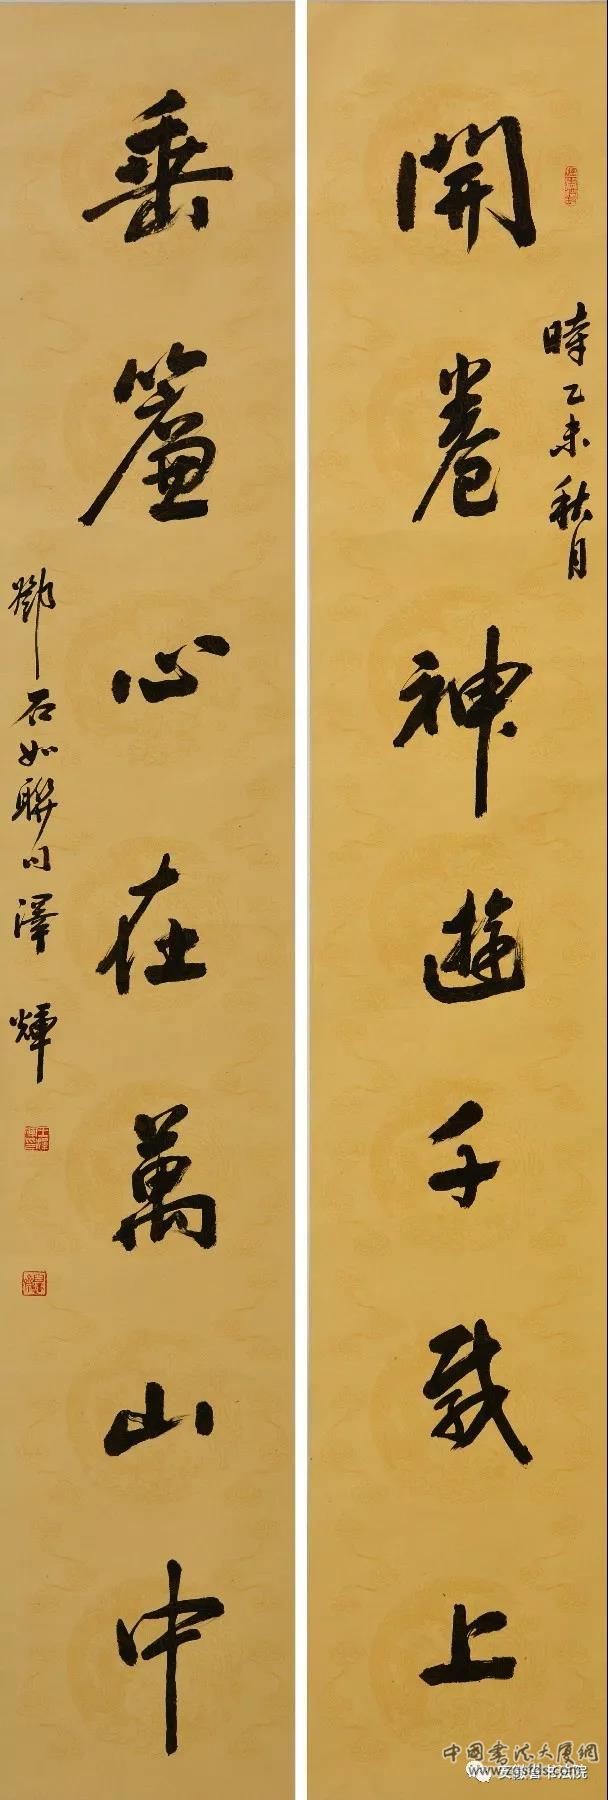 時乙未秋月
開卷神遊千載上
垂簾心在萬山中
鄧石如聯句澤輝
中國書法大厦網
www.zgsfds.com
安徽省书法院